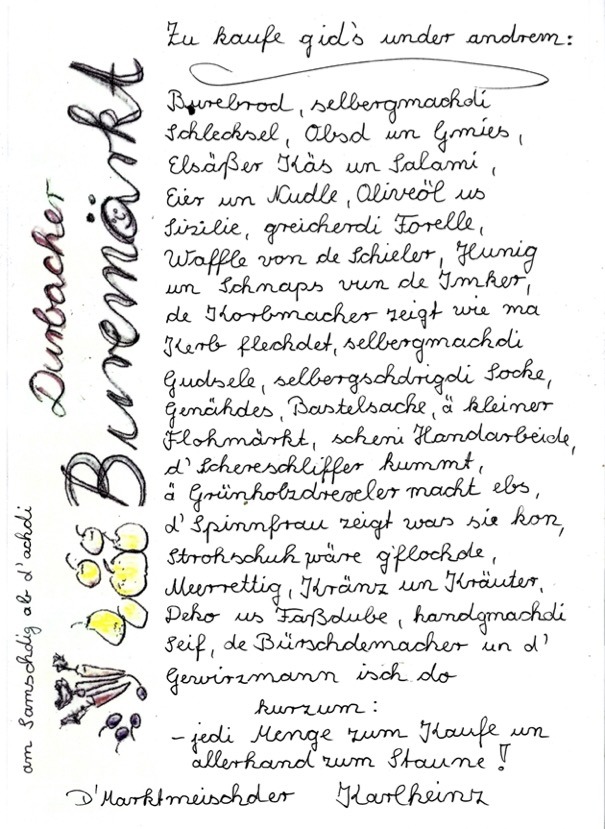 Durbacher
Buremärkt
am Samschdig ab d'achdi
Zu kaufe gid's under andrem:
Burebrod, selbergmachdi
Schlecksel, Obsd un Gmies,
Elsäßer Käs un Salami,
Eier un Nudle, Oliveöl us
Sizilie, greicherdi Forelle,
Waffle von de Schieler, Hunig
un Schnaps vun de Imker,
de Korbmacher zeigt wie ma
Kerb flechdet, selbergmachdi
Gudsele, selbergschdrigdi Socke,
Genähdes, Bastelsache, ä kleiner
Flohmärkt, scheni Handarbeide,
d'Schereschliffer kummt,
ä Grünholzdrexeler macht ebs,
d'Spinnfrau zeigt was sie kon,
Strohschuh wäre g'flochde,
Meerrettig, Kränz un Kräuter,
Deko us Faßdube, handgmachdi
Seif, de Bürschdemacher un d'
Gewirzmann isch do
kurzum:
- jedi Menge zum Kaufe un
allerhand zum Staune!
D'Marktmeischder Karlheinz